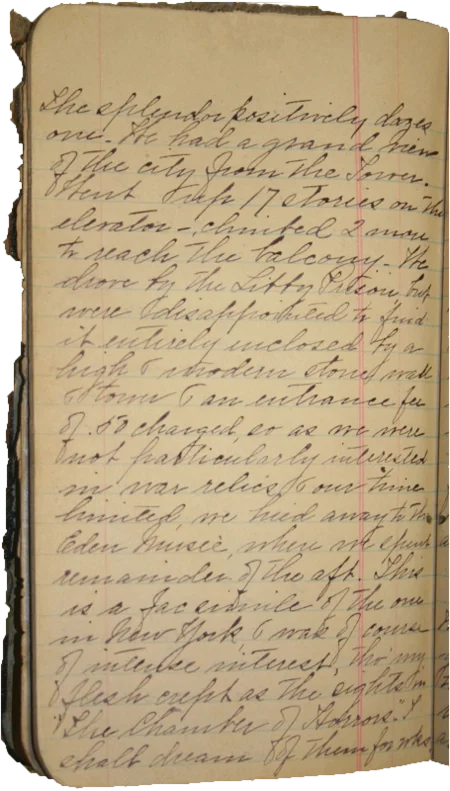 The splendor positively dazes
one. We had a grand view
of the city from the Tower.
Went up 17 stories on the
elevator -, climbed 2 more
to reach the balcony. We
drove by the Libby Prison, but
were disappointed to find
it entirely enclosed by a
high & modern stone wall
& tower & an entrance fee
of .50 charged, so as we were
not particularly interested
in war relics, & our time
limited, we hied away to the
Eden Museè, where we spent
remainder of the aft. This
is a facsimile of the one
in New York, & was of course
of intense interest, tho' my
flesh crept as the sights in
"The Chamber of Horrors". I
shall dream of them for wks